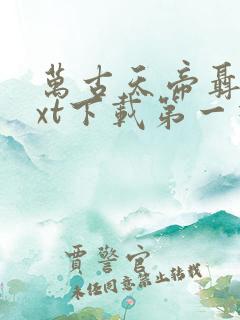 萬古天帝聶
xt下載第一
賈警官
未經同意禁止轉載